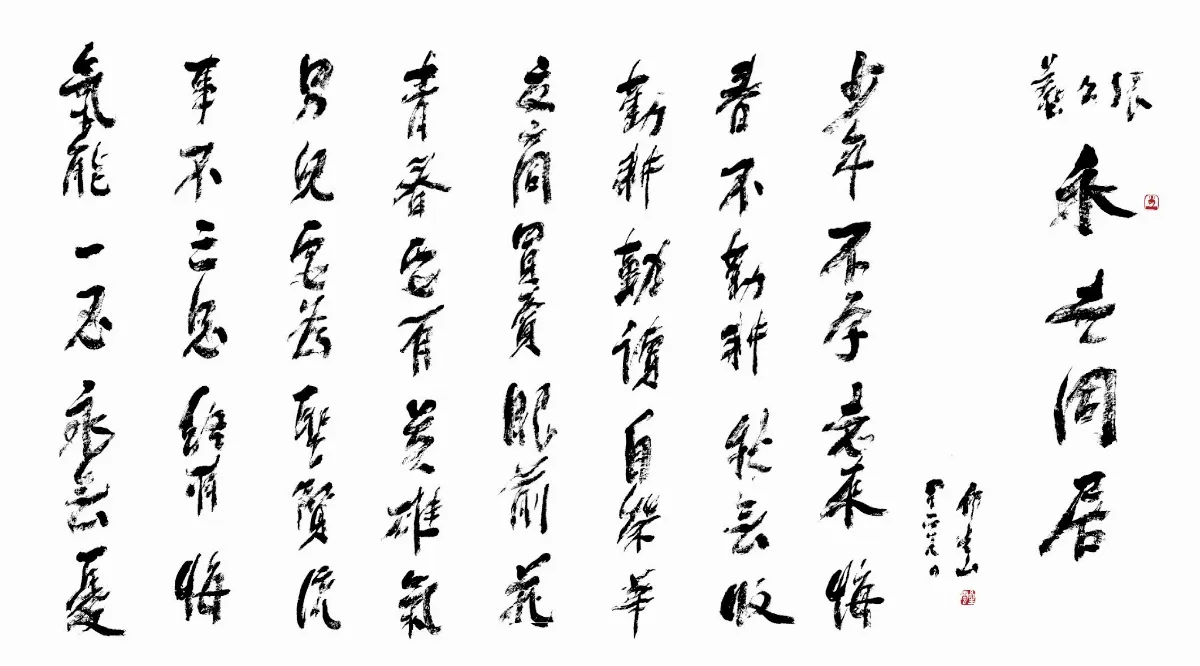 張公藝
永世同居
少年不學老來悔
春不勤耕秋無收
勤耕勤讀自榮華
商買賣眼前花
青春定有英雄氣
男兒定為聖賢流
事不三思終有悔
氣能一忍永無憂